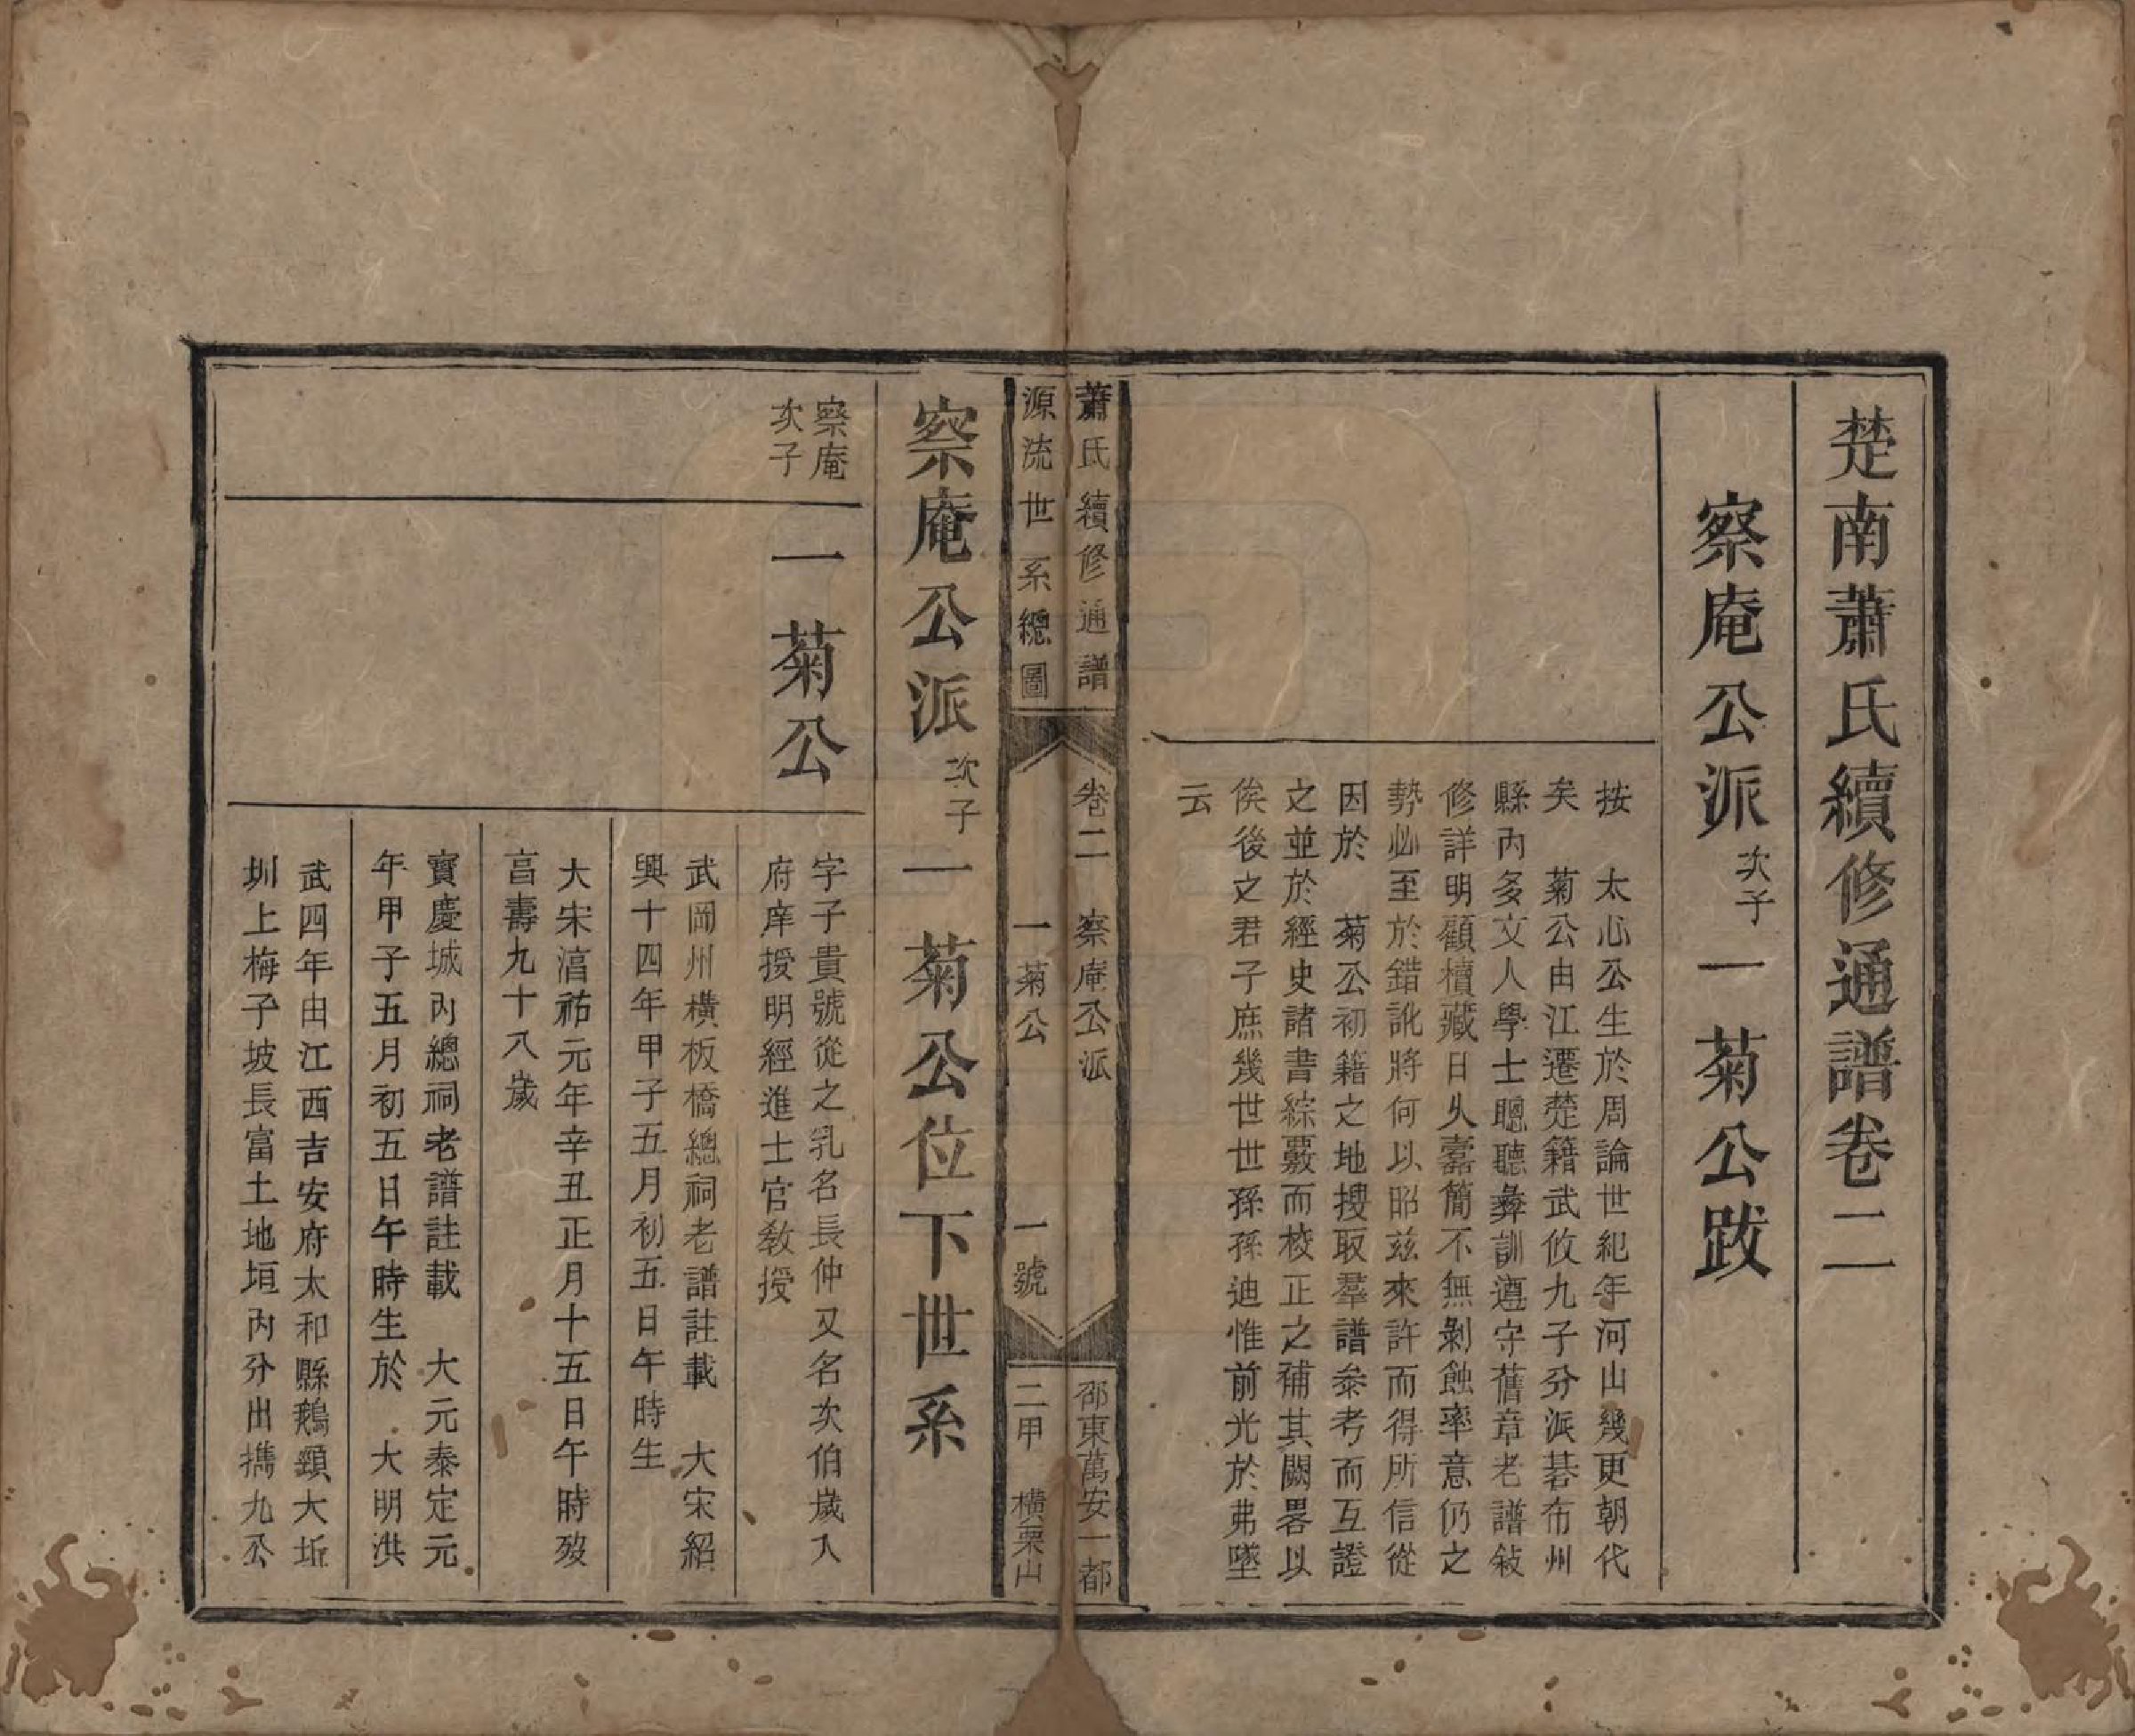 楚南蕭氏續修通譜卷二
察庵公派次子一菊公跋
按　太心公生於周論世紀年河山幾更朝代
矣　菊公由江遷楚籍武攸九子分派碁布州
縣內多文人學士聰聽彝訓遵守舊章老譜敍
修詳明顧櫝藏日久蠹簡不無剝蝕率意仍之
勢必至於錯訛將何以昭茲來許而得所信從
因於　菊公初籍之地搜取羣譜叅考而互證
之並於經史諸書綜覈而校正之補其闕畧以
俟後之君子庶幾世世孫孫迪惟前光於弗墜
云
蕭氏續修通譜　卷二　察庵公派　邵東萬安一都
源流世系總圖　一菊公　一號　二甲　橫栗山
察庵公派次子一菊公位下世系
察庵
次子
一菊公
字子貴號從之乳名長仲又名次伯歲入
府庠授明經進士官教授
武岡州橫板橋總祠老譜註載　大宋紹
興十四年甲子五月初五日午時生
大宋湻祐元年辛丑正月十五日午時歿
亯壽九十八歲
寶慶城內總祠老譜註載　大元泰定元
年甲子五月初五日午時生於　大明洪
武四年由江西吉安府太和縣鵝頸大坵
圳上梅子坡長富土地垣內分出擕九公